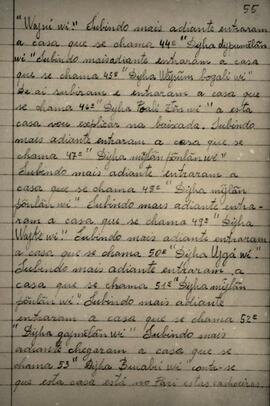 55
"Wajni wi." Subindo mais adiante entraram
a casa que se chama 44ª "Dijha
wi" Subindo mais adiante entraram a casa
que se chama 45ª "Dijha Wajsũm bogali wi"
De aí subiram e entraram a casa que
se chama 46ª "Dijha Pali wi" a esta
casa vou explicar na baixada. Subindo
mais adiante entraram a casa que se
chama 47ª "Dijha mijtãn põnlãn wi"
Subindo mais adiante entraram a
casa que se chama 48ª "Dijha mijtãn
põnlãn wi" Subindo mais adiante entra-
ram a casa que se chama 49ª "Dijha
Wajtẽ wi." Subindo mais adiante entraram
a casa que se chama 50ª "Dijha Ugá wi"
Subindo mais adiante entraram a
casa que se chama 51ª "Dijha mijtãn
põnlãn wi". Subindo mais adiante
entraram a casa que se chama 52ª
"Dijha gajmetãn wi" Subindo mais
adiante chegaram a casa que se
chama 53ª "Dijha wi" conta-se
que esta casa está no Pari estas cachoeiras.